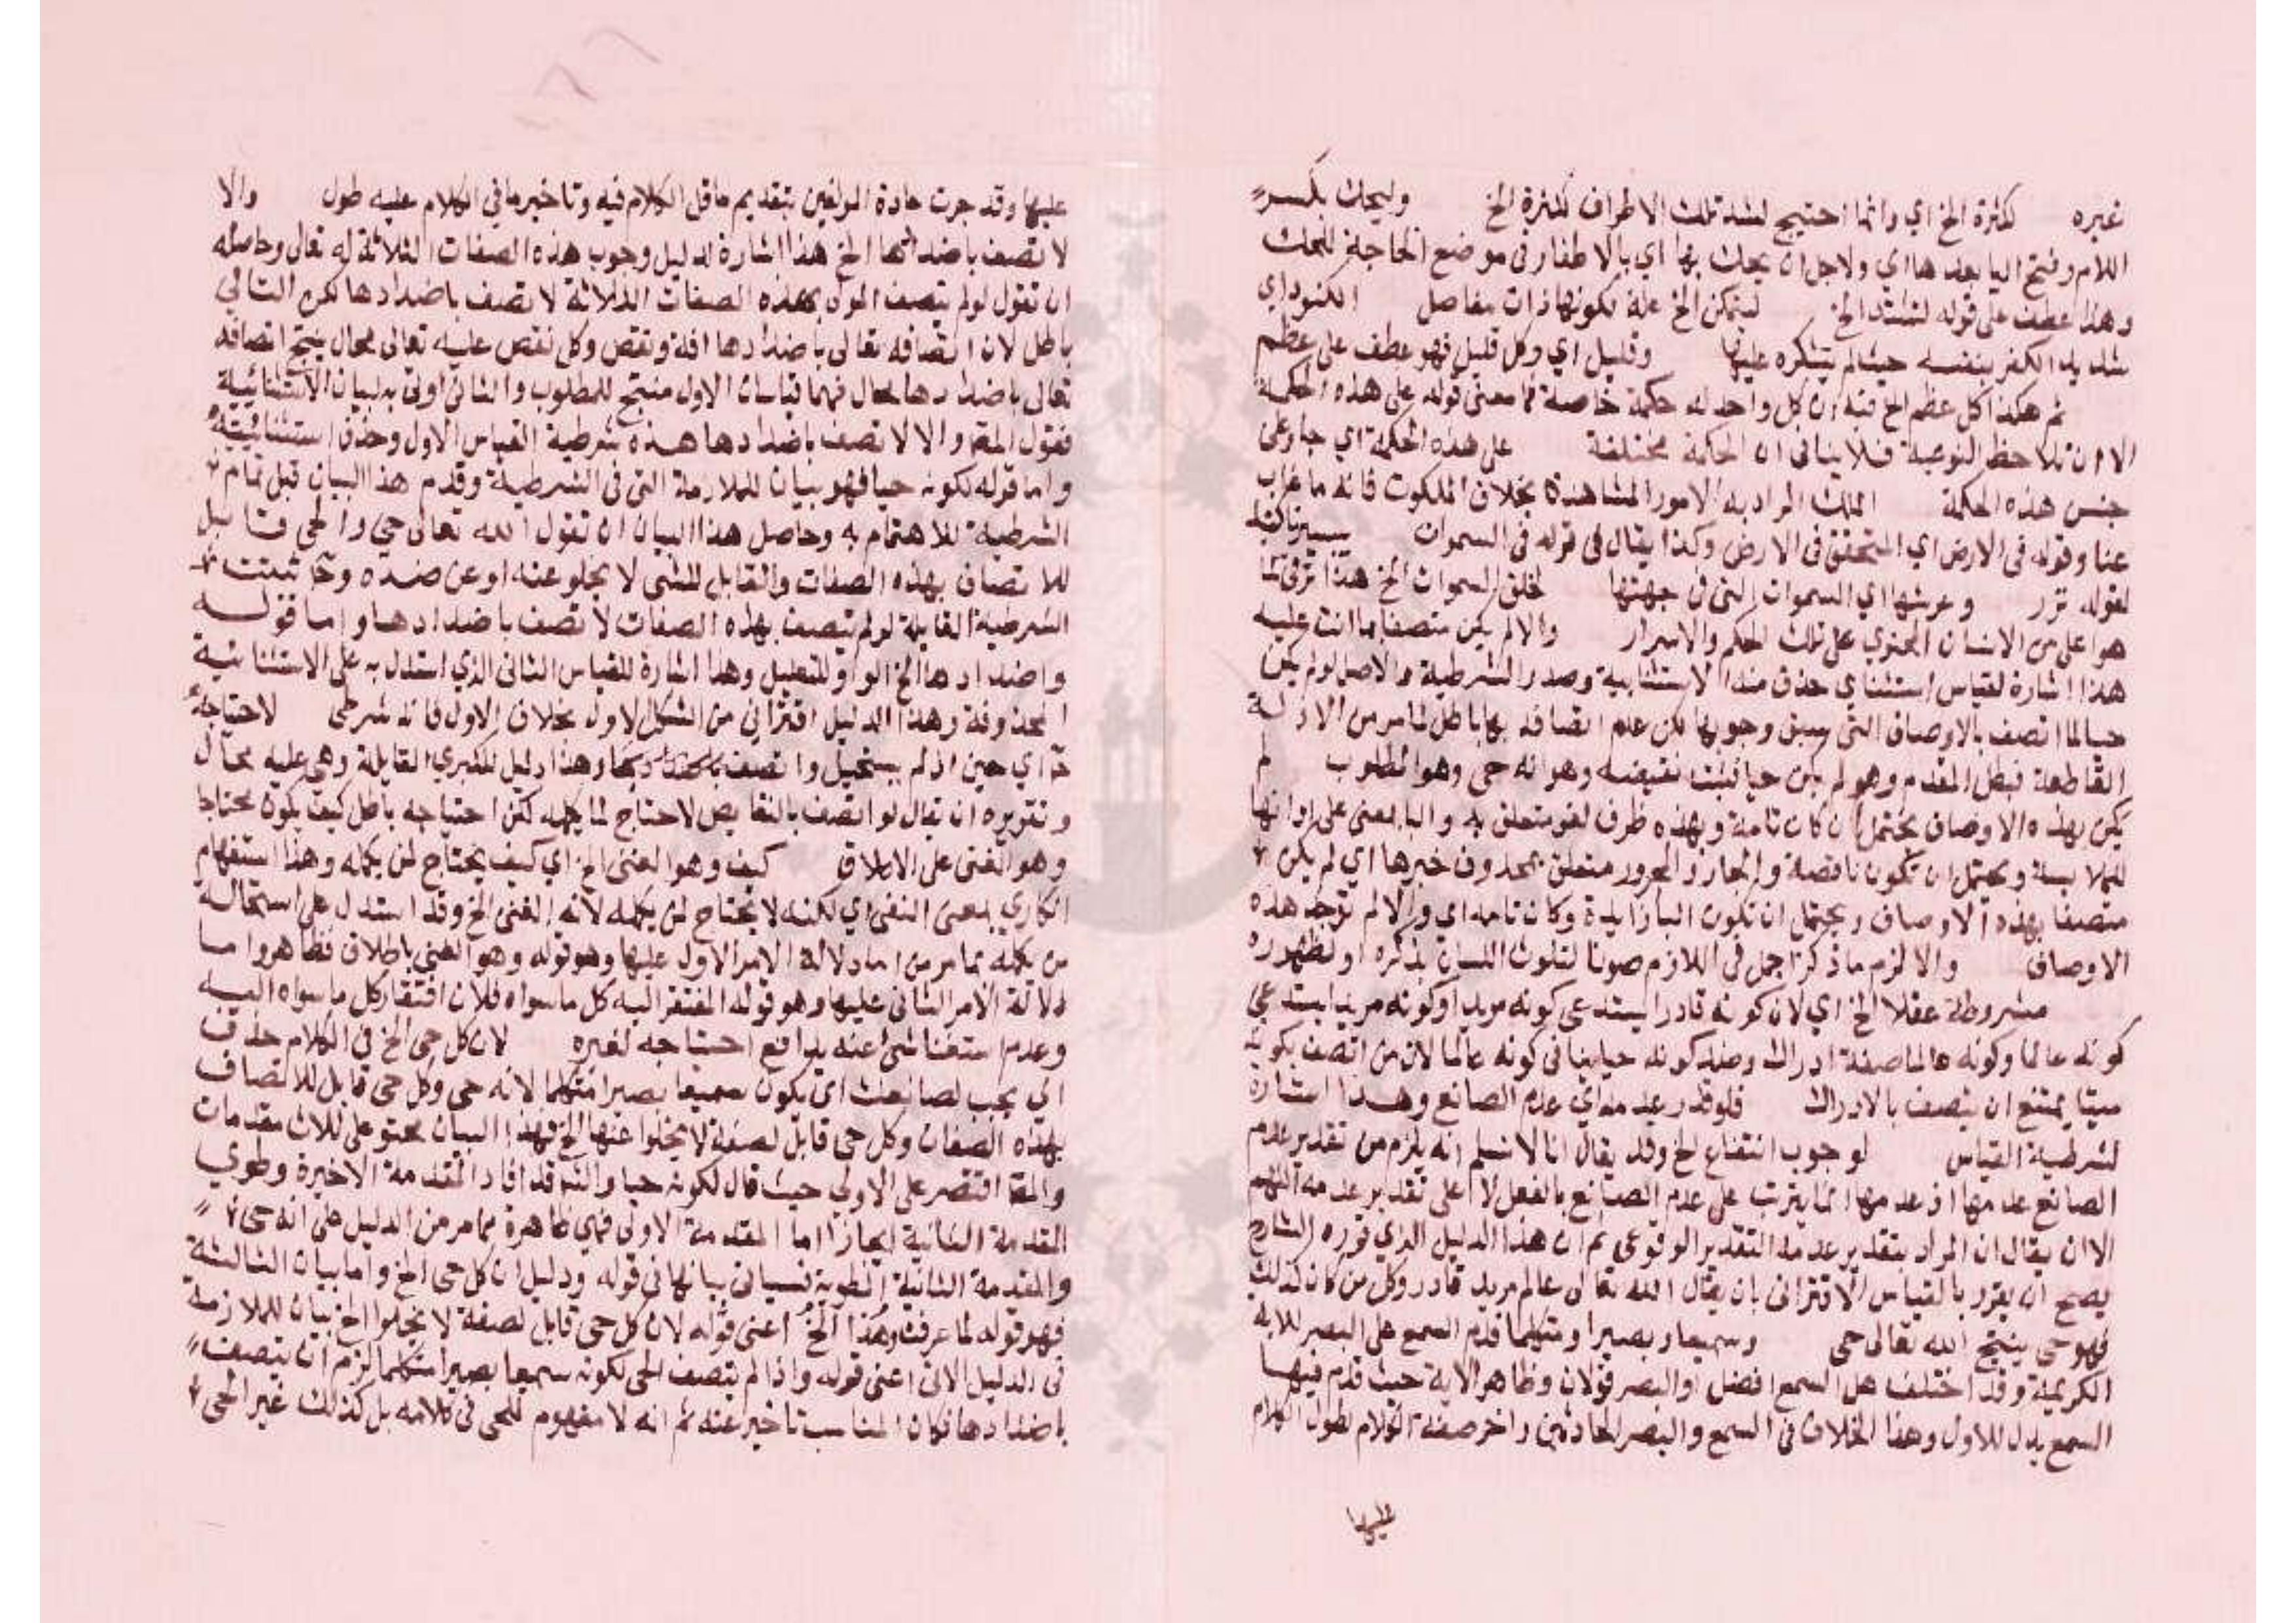 غيره لكثرة الخ اي وانما احتيج لشد تلك الاطراف لكثرة الخ وليحك بكسر
اللام وفتح اليا بعدها اي ولاجل ان يحك بها اي بالاطفار في موضع الحاجة للحك
وهذا عطف على قوله لتشتد الخ ليتمكن الخ علة لكونها ذات مفاصل الكنود اي
شديد الكفر بنفسه حيث لم يتشكره عليها وقليل اي وكل قليل فهو عطف على عظم
ثم هكذا كل عظم الخ فيه ان كل واحد له حكمة خاصة فما معنى قوله على هذه الحكمة
الا ان تلاحظ النوعية فلا ينافي ان الحكمة مختلفة على هذه الحكمة اي جار على
جنس هذه الحكمة الملك المراد به الامور المشاهدة بخلاف الملكوت فانه ما غاب
عنا وقوله في الارض اي المتحقق في الارض وكذا يقال في قوله في السموات
لقوله وعرشها اي السموات التي في جهتها خلق السموات الخ هذا ترق لما
هو اعلى من الانسان المحتوي على تلك الحكم والاسرار والا لم يكن متصفا بما انت عليه
هذا اشارة لقياس استثناي حذف منه الاستثنايية وصدر الشرطية والاصل لو لم يكن
حيا لما اتصف بالاوصاف التي سبق وجوبها لكن عدم اتصافه بها باطل لما مر من الادلة
القاطعة فبطل المقدم وهو لم يكن حيا فثبت نقيضه وهو انه حي وهو المطلوب لم
يكن بهذه الاوصاف يحتمل ان كان تامة وبهذه ظرف لغو متعلق به والبا بمعنى على او انها
للملابسة ويحتمل ان تكون ناقصة والجار والمجرور متعلق بمحذوف خبرها اي لم يكن
متصفا بهذه الاوصاف ويحتمل ان تكون البا زايدة وكان تامه اي والا لم توجد هذه
الاوصاف والا لزم ما ذكر اجمل في اللازم صونا لتلوث اللسان بذكره او لظهوره
مشروطة عقلا الخ اي لان كونه قادرا يستدعي كونه مريدا وكونه مريدا يستدعي
كونه عالما وكونه عالما صفة ادراك وضد كونه حيا ينافي كونه عالما لان من اتصف بكونه
ميتا يمتنع ان يتصف بالادراك فلو قدر عدمه اي عدم الصانع وهذا اشارة
لشرطية القياس لوجوب انتفاع الخ وقد يقال انا لا نسلم انه يلزم من تقدير عدم
الصانع عدمها اذ عدمها انما يترتب على عدم الصانع بالفعل لا على تقدير عدمه اللهم
الا ان يقال ان المراد بتقدير عدمه التقدير الوقوعي ثم ان هذا الدليل الذي قرره الشارح
يصح ان يقرر بالقياس الاقتراني بان يقال الله تعالى عالم مريد قادر وكل من كان كذلك
فهو حي ينتج الله تعالى حي وسميعا وبصيرا ومتكلما قدم السمع على البصر للاية
الكريمة وقد اختلف هل السمع افضل او البصر قولان وظاهر الاية حيث قدم فيها
السمع يدل للاول وهذا الخلاف في السمع والبصر الحادثين واخر صفة الكلام لطول الكلام
عليها
عليها وقد جرت عادة المولفين بتقديم ما قل الكلام فيه وتاخير ما في الكلام عليه طول والا
لاتصف باضدادها الخ هذا اشارة لدليل وجوب هذه الصفات الثلاثة له تعالى وحاصله
ان تقول لو لم يتصف المولى بهذه الصفات الثلاثة لاتصف باضدادها لكن التالي
باطل لان اتصافه تعالى باضدادها افة ونقص وكل نقص عليه تعالى محال ينتج اتصافه
تعالى باضدادها محال فهما قياسان الاول منتج للمطلوب والثاني اوتي به لبيان الاستثنائية
فقول المتن والا لاتصف باضدادها هذه شرطية القياس الاول وحذف استثنائيته
واما قوله لكونه حيا فهو بيان للملازمة التي في الشرطية وقدم هذا البيان قبل تمام
الشرطية للاهتمام به وحاصل هذا البيان ان تقول الله تعالى حي والحي قابل
للاتصاف بهذه الصفات والقابل للشي لا يخلو عنه او عن ضده وح ثبتت
الشرطية القايلة لو لم يتصف بهذه الصفات لاتصف باضدادها واما قوله
واضدادها الخ الواو للتعليل وهذا اشارة للقياس الثاني الذي استدل به على الاستثنائية
المحذوفة وهذا الدليل اقتراني من الشكل الاول بخلاف الاول فانه شرطي لاحتاج
ح اي حين اذ لم يستحيل واتصف وهذا دليل للكبري القايلة وهي عليه محال
وتقريره ان تقال لو اتصف بالنقايص لاحتاج لمن يكمله لكن احتياجه باطل كيف يكون محتاجا
وهو الغني على الاطلاق كيف وهو الغني الخ اي كيف يحتاج لمن يكمله وهذا استفهام
انكاري بمعنى النفي اي لكنه لا يحتاج لمن يكمله لانه الغني الخ وقد استدل على استحالة
من يكمله بما مر من اما دلالة الامر الاول عليها وهو قوله وهو الغني باطلاق فظاهر واما
دلالة الامر الثاني عليها وهو قوله المفتقر اليه كل ما سواه فلان افتقار كل ما سواه اليه
وعدم استغنا شي عنه يدافع احتياجه لغيره لان كل حي الخ في الكلام حذف
اي يجب لصانعك ان يكون سميعا بصيرا متكلما لانه حي وكل حي قابل للاتصاف
بهذه الصفات وكل حي قابل لصفة لا يخلوا عنها الخ فهذا البيان محتو على ثلاث مقدمات
والمتن اقتصر على الاولي حيث قال لكونه حيا والشر قد افاد المقدمة الاخيرة وطوي
المقدمة الثانية ايجازا اما المقدمة الاولى فهي ظاهرة مما مر من الدليل على انه حي
والمقدمة الثانية المطوية فسياتي بيانها في قوله ودليل ان كل حي الخ واما بيان الثالثة
فهو قوله لما عرفت وهذا الخ اعني قوله لان كل حي قابل لصفة لا يخلوا الخ بيان للملازمة
في الدليل الاتي اعني قوله واذا لم يتصف الحي لكونه سميعا بصيرا متكلما لزم ان يتصف
باضدادها فكان المناسب تاخيره عنه ثم انه لا مفهوم للحي في كلامه بل كذلك غير الحي